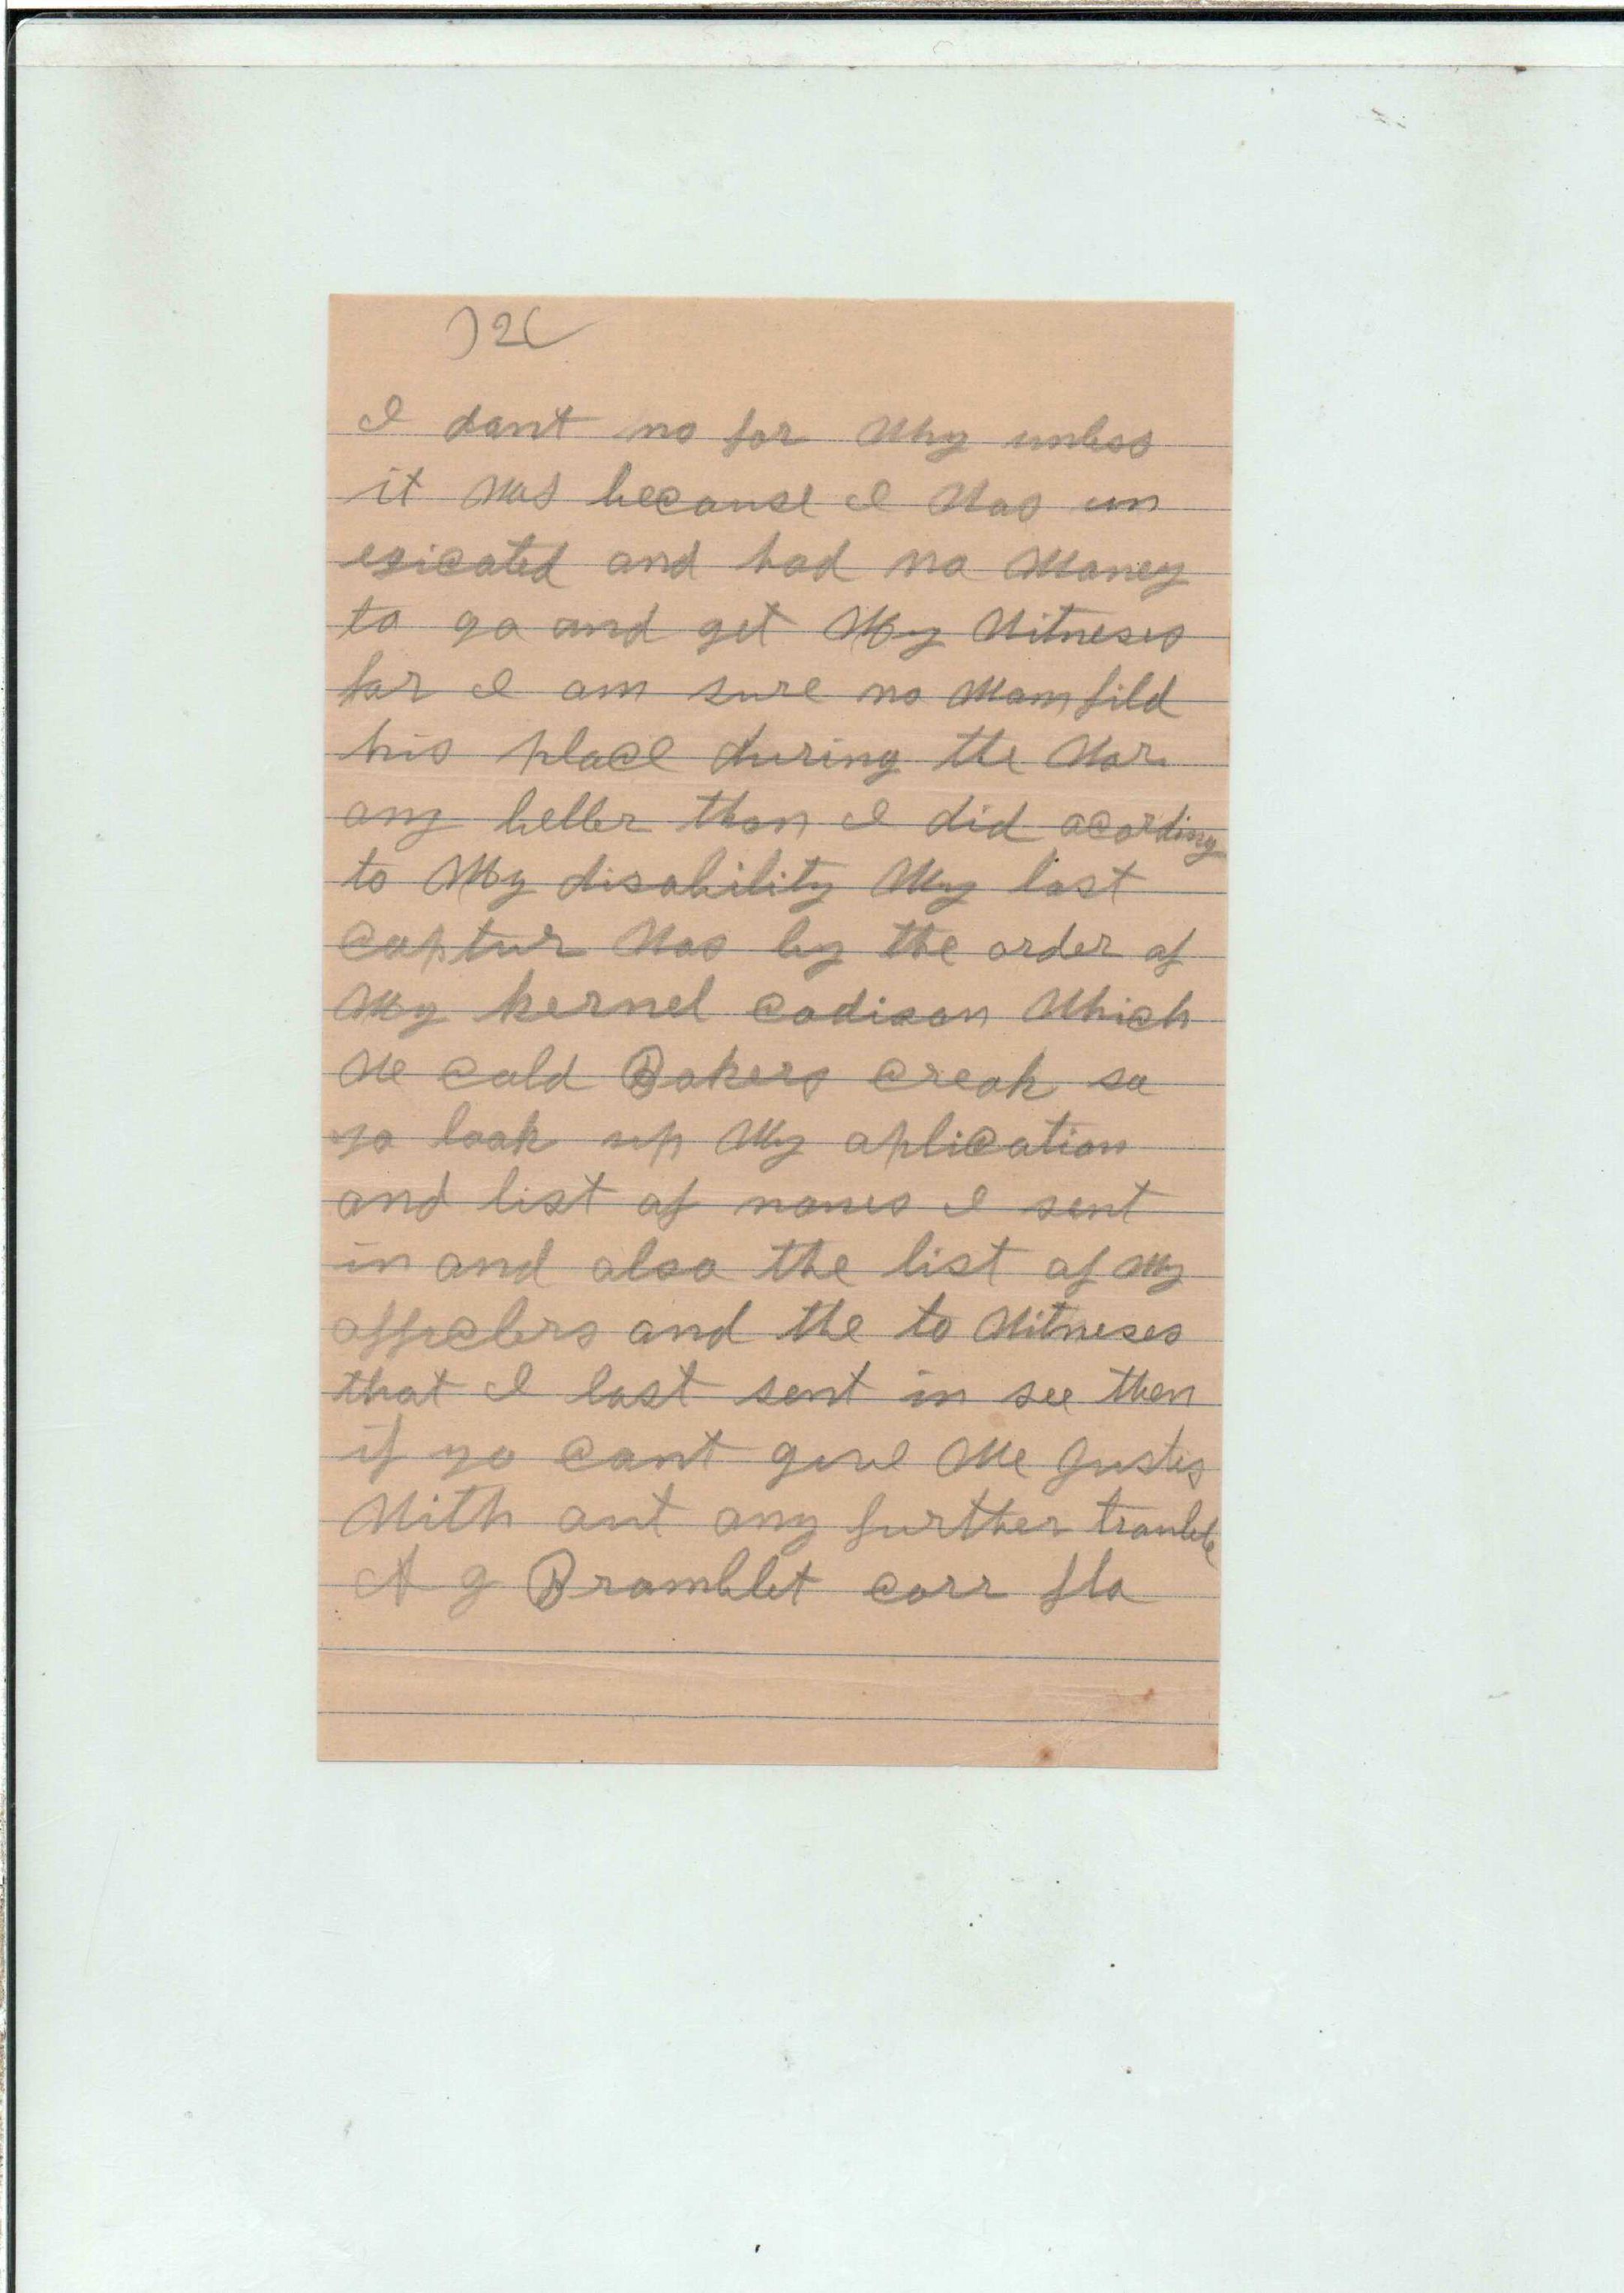 )2(
I dont no for Why unless
it Was because I Was un
egicated and had no Money
to go and get My Witneses
for I am sure no Man fild
his place during the War
any better than I did acording
to My disability My last
captur Was by the order of
My kernel codison Which
We cald Bakers creak so
yo look up My aplication
and list of names I sent
in and also the list of My
offecters and the to Witneses
that I last sent in see then
if yo cant give Me Justis
With out any further trouble
A g Bramblet corr fla